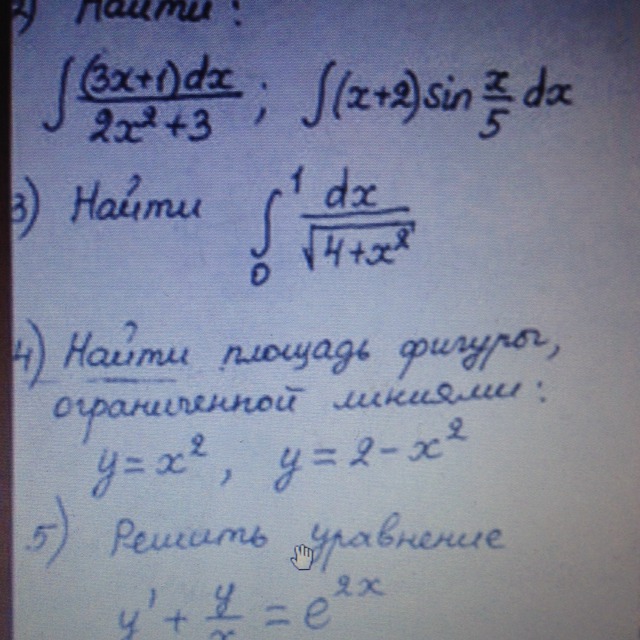 2) Найти:
∫ (3x+1)dx / 2x²+3 ; ∫(x+2) sin x/5 dx
3) Найти ∫₀¹ dx / √4+x²
4) Найти площадь фигуры,
ограниченной линиями:
y = x², y = 2 - x²
5) Решить уравнение
y' + y/x = e²ˣ